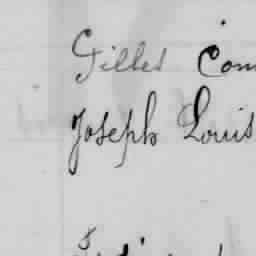 Gilles Com
Joseph Louis